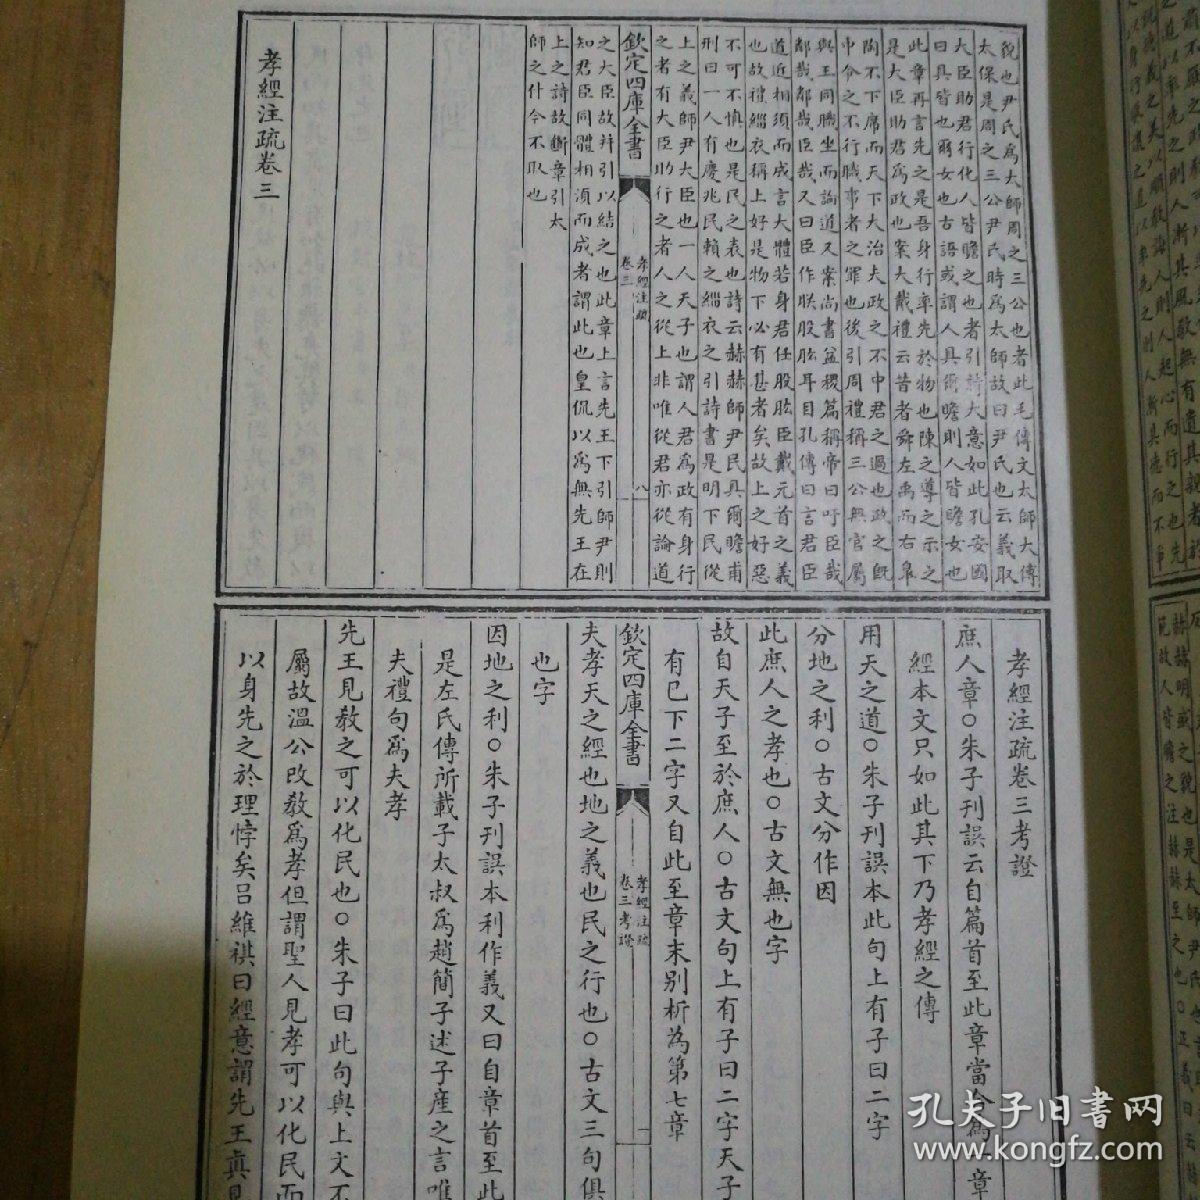 貌也尹氏為太師周之三公也者此毛傳文太師大傳
太保是周之三公尹氏時為太師故曰尹氏也云義取
大臣助君行化人皆瞻之也者引詩大意如此孔安國
曰具皆也爾女也古語或謂人具爾瞻則人皆瞻女也
此章再言先之是吾身行率先於物也陳之導之示之
是大臣助君為政也案大戴禮云昔者舜左禹而右皐
陶不下席而天下大治夫政之不中君之過也政之既
中令之不行職事者之罪也後引周禮稱三公無官屬
與王同職坐而論道又案尚書益稷篇稱帝曰吁臣哉
鄰哉鄰哉臣哉又曰臣作朕股肱耳目孔傳曰言君臣
道近相須而成言大體若身君任股肱臣戴元首之義
也故禮緇衣稱上好是物下必有甚者矣故上之好惡
不可不慎也是民之表也詩云赫赫師尹民具爾瞻甫
刑曰一人有慶兆民賴之緇衣之引詩書是明下民從
上之義師尹大臣也一人天子也謂人君為政有身行
之者有大臣助行之者人之從上非唯從君亦從論道
欽定四庫全書
孝經注疏
卷三
八
之大臣故并引以結之也此章上言先王下引師尹則
知君臣同體相須而成者謂此也皇侃以為無先王在
上之詩故斷章引太
師之什今不取也
孝經注疏卷三
孝經注疏卷三考證
庶人章○朱子刊誤云自篇首至此章當合為一章
經本文只如此其下乃孝經之傳
用天之道○朱子刊誤本此句上有子曰二字
分地之利○古文分作因
此庶人之孝也○古文無也字
故自天子至於庶人○古文句上有子曰二字天子
有已下二字又自此至章末别析為第七章
欽定四庫全書
孝經注疏
卷三考證
一
夫孝天之經也地之義也民之行也○古文三句俱
也字
因地之利○朱子刊誤本利作義又曰自章首至此
是左氏傳所載子太叔為趙簡子述子產之言唯
夫禮句為夫孝
先王見教之可以化民也○朱子曰此句與上文不
屬故溫公改教為孝但謂聖人見孝可以化民而
以身先之於理悖矣吕維祺曰經意謂先王真見
孔夫子旧書网
www.kongfz.com